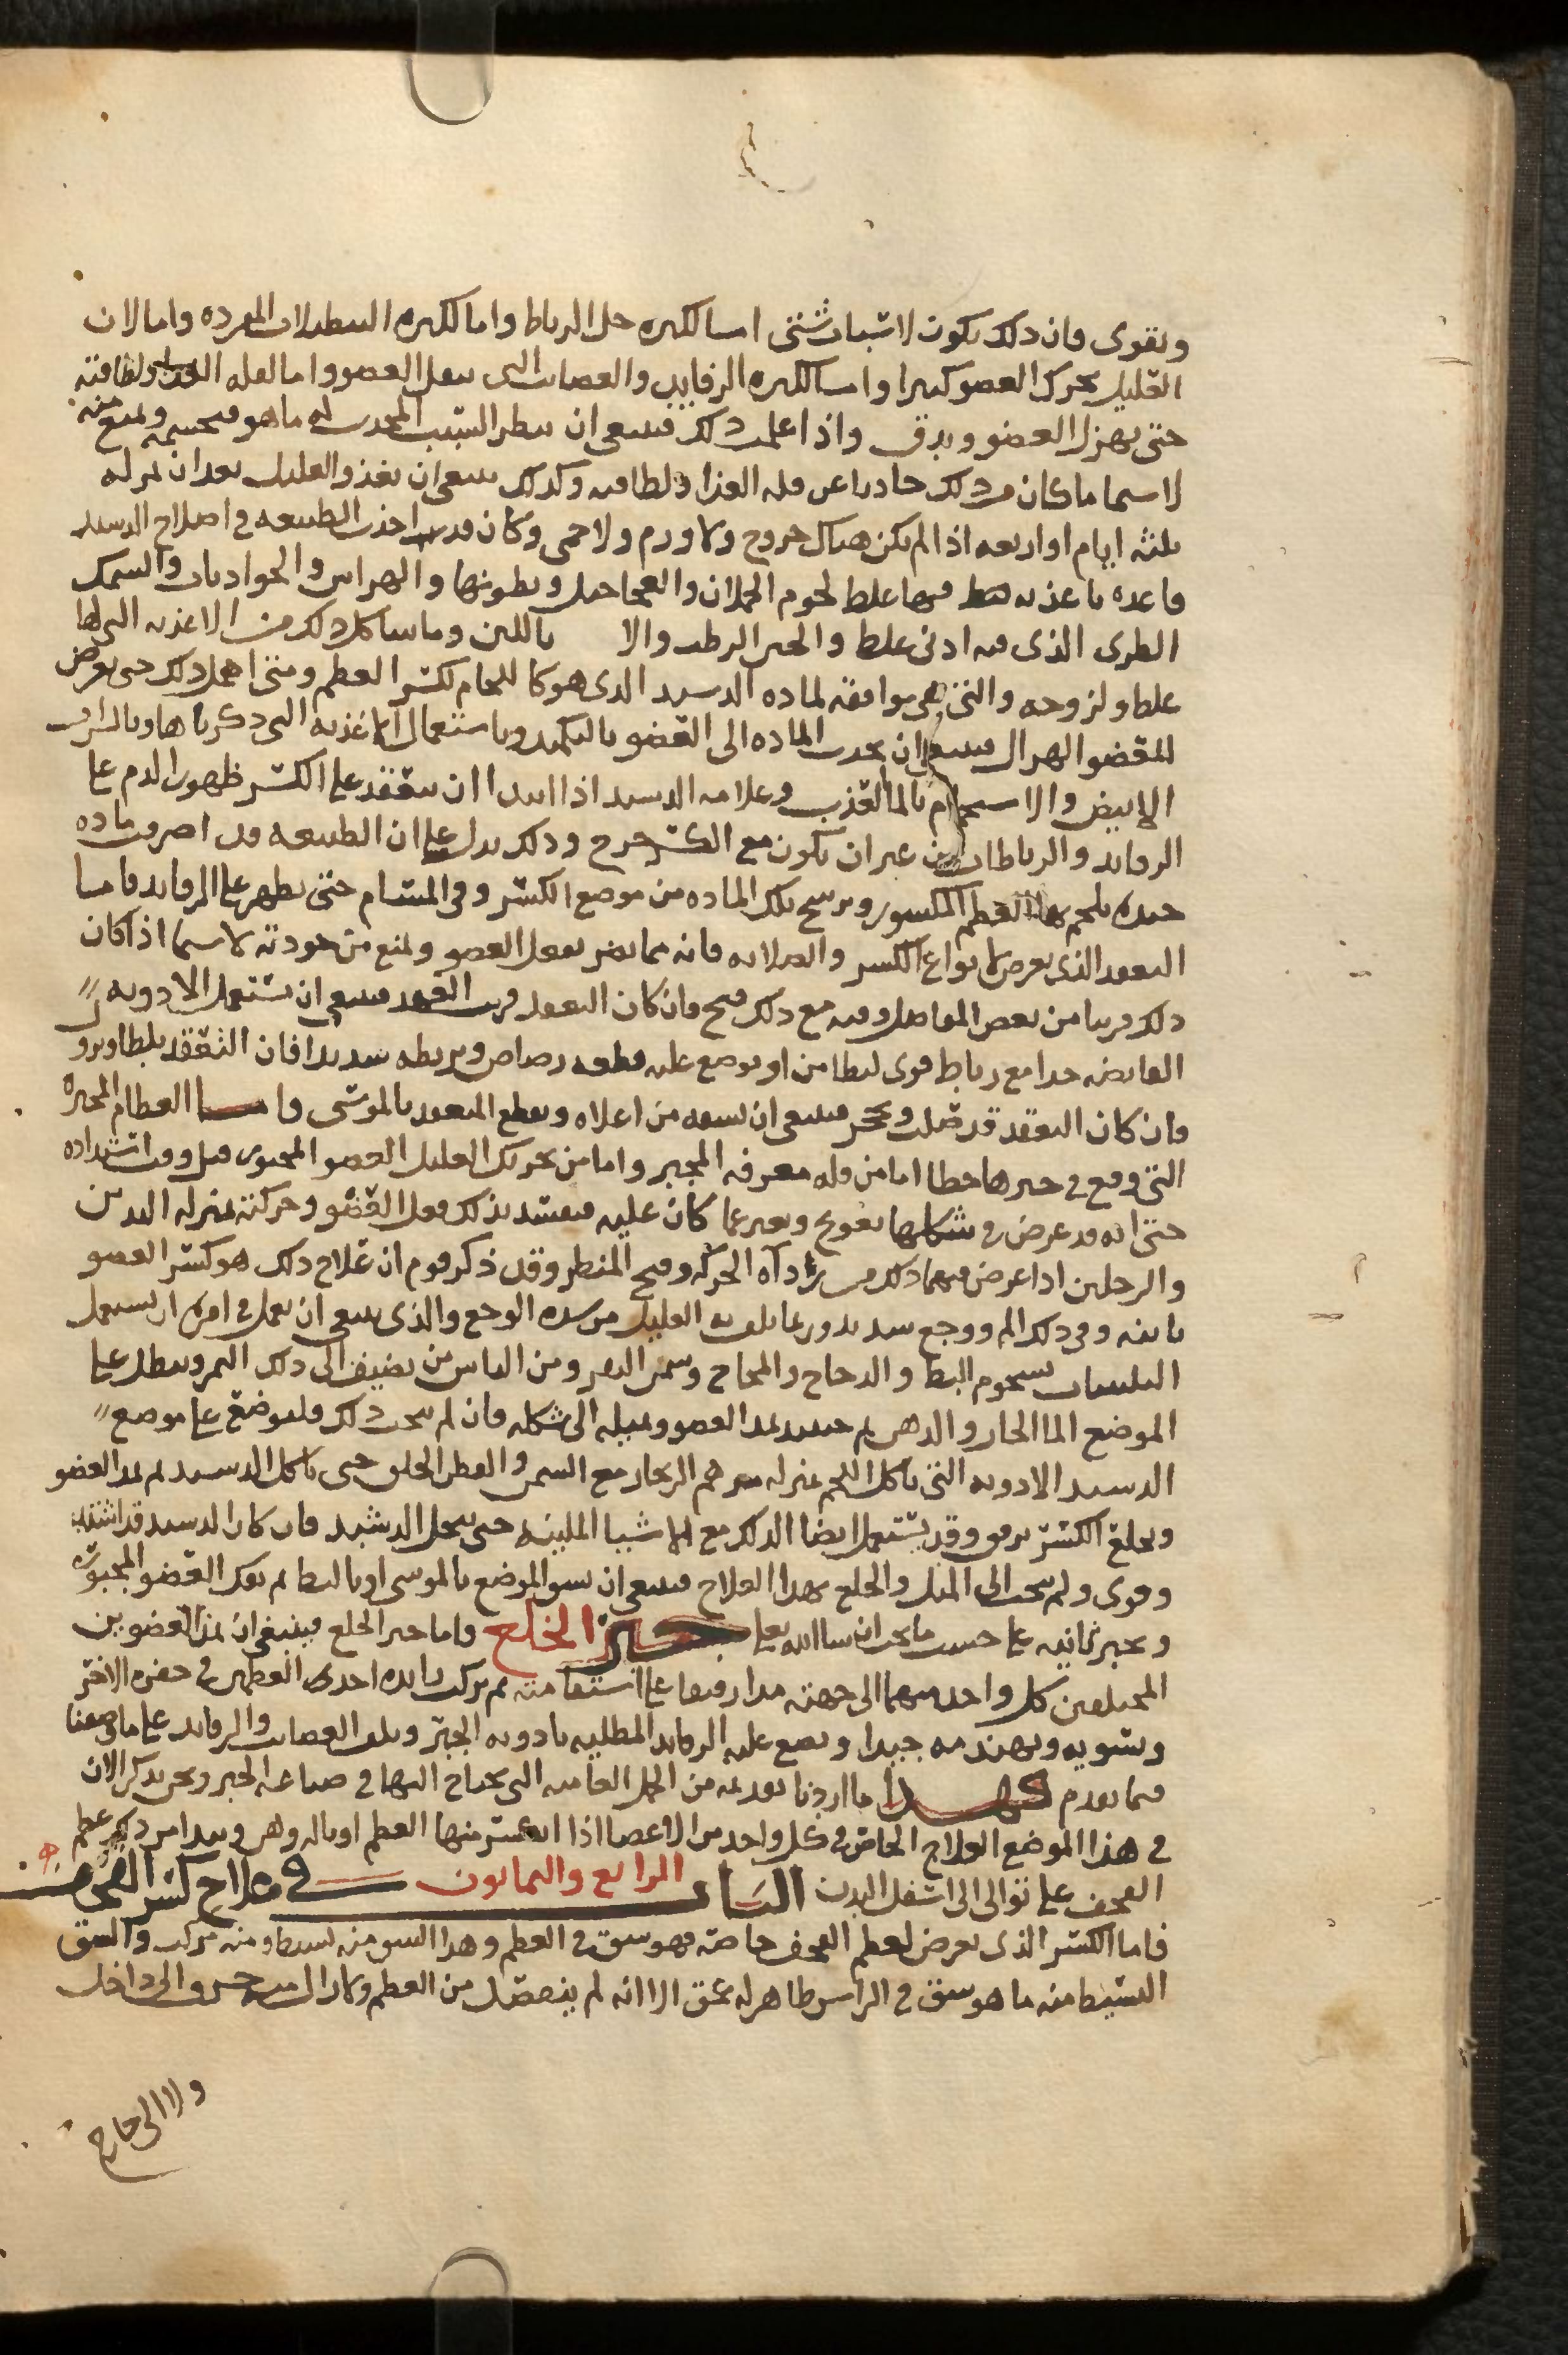 ويقوى فان ذلك يكون لاسباب شتى اما لكثره حل الرباط واما لكثره النطولات المفرده واما لان
القليل يحرك العضو كثيرا واما لكثره الرفايد والعصايب التى تثقل العضو واما لقله الغذا ولطافته
حتى يهزل العضو ويدق واذا علمت ذلك فينبغى ان ينظر السبب المحدث له ما هو فيحسمه ويمنع منه
لا سيما ما كان من ذلك حادثا عن قله الغذا ولطافته وكذلك ينبغى ان يغذو العليل بعد ان تمر له
ثلثه ايام او اربعه اذا لم يكن هناك جروح ولا ورم ولا حمى وكان قد اخذت الطبيعه فى اصلاح الدشبد
فاغذه باغذيه فيها غلظ لحوم الحملان والعجاجيل وبطونها والهرايس والجواذبات والسمك
الطرى الذى فيه ادنى غلظ والخبز الرطب والا باللبن وما شاكل ذلك من الاغذيه التى لها
غلظ ولزوجه والتى هى موافقه لماده الدشبد الذى هو كاللحام لكسر العظم ومتى اهمل ذلك حتى يعرض
للعضو الهزال فينبغى ان يجذب الماده الى العضو بالتكميد وباستعمال الاغذيه التى ذكرناها وبالشراب
الابيض والاستحمام بالما العذب وعلامه الدشبد اذا ابتدا ان ينعقد على الكسر ظهور الدم على
الرفايد والرباطات من غير ان يكون مع الكسر جرح وذلك يدل على ان الطبيعه قد اصرفت ماده
جيده يلتحم بها العظم المكسور ويرشح تلك الماده من موضع الكسر وفى المسام حتى يظهر على الرفايد فاما
التعقد الذى يعرض لانواع الكسر والصلابه فانه مما يضر بفعل العضو ويمنع من جودته لا سيما اذا كان
ذلك قريبا من بعض المفاصل وفيه مع ذلك قبح فان كان التعقد قريب العهد فينبغى ان يستعمل الادويه
القابضه جدا مع رباط قوى لبطا من او يوضع عليه قطعه رصاص ويربطه شديدا فان التعقد يلطا ويرو
فان كان التعقد قد صلب وتحجر فينبغى ان يشقه من اعلاه ويقطع المتعقد بالموسى واما العظام المجبره
التى وقع فى جبرها خطا اما من قله معرفه المجبر واما من تحريك العليل العضو المجبور قبل وقت اشتداده
حتى انه قد عرض فى شكلها تعويج وتغير عما كان عليه فيفسد بذلك فعل العضو وحركته بمنزله اليدين
والرجلين اذا عرض فيهما ذلك من رداه الحركه وقبح المنظر وقد ذكر قوم ان علاج ذلك هو كسر العضو
ثانيه وفى ذلك الم ووجع شديد وربما تلف به العليل من شده الوجع والذى ينبغى ان يعمل فى امره ان يستعمل
التليينات بشحوم البط والدجاج والمخاخ وسمن البقر ومن الناس من يضيف الى ذلك التمر وينطل على
الموضع الما الحار والدهن ثم حينيد يمد العضو ويميله الى شكله فان لم ينجح ذلك فليوضع على موضع
الدشبد الادويه التى تاكل اللحم بمنزله مرهم الزنجار مع السمن والقطن الخلق حتى ياكل الدشبد ثم يمد العضو
ويخلع الكسر برفق وقد يستعمل ايضا الدلك مع الاشيا الملينه حتى ينحل الدشبد فان كان الدشبد قد اشتد
وقوى ولم ينجب الى الميل والخلع بهذا العلاج فينبغى ان يشق الموضع بالموسى او بالبط ثم يفك العضو المجبور
ويجبر ثانيه على حسب ما يجب ان شا الله تعالى جبر الخلع واما جبر الخلع فينبغى ان يمد العضوين
المختلعين كل واحد منهما الى جهته مدا رفيقا على استقامته ثم يركب زايده احدى العظمين فى حفره الاخر
وتسويه ويهندمه جيدا ويضع عليه الرفايد المطليه بادويه الجبر ويلف العصايب والرفايد على ما وصفنا
فيما تقدم فهذا ما اردنا تقديمه من الجمل العاميه التى يحتاج اليها فى صناعه الجبر ونحن نذكر الان
فى هذا الموضع العلاج الخاص فى كل واحد من الاعضا اذا انكسر منها العظم او ناله وهن ونبدا من ذكر عظم
القحف على توالى الى اسفل البدن الباب الرابع والثمانون فى علاج كسر القحف
فاما الكسر الذى يعرض لعظم القحف خاصه فهو شق فى العظم وهذا الشق منه بسيط ومنه مركب والشق
البسيط منه ما هو شق فى الراس ظاهر له عمق الا انه لم ينفصل من العظم ولا الى داخل
ولا الى خارج